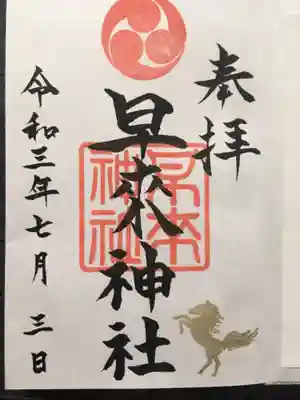 奉拝
早来神社
早来神社
令和三年七月三日